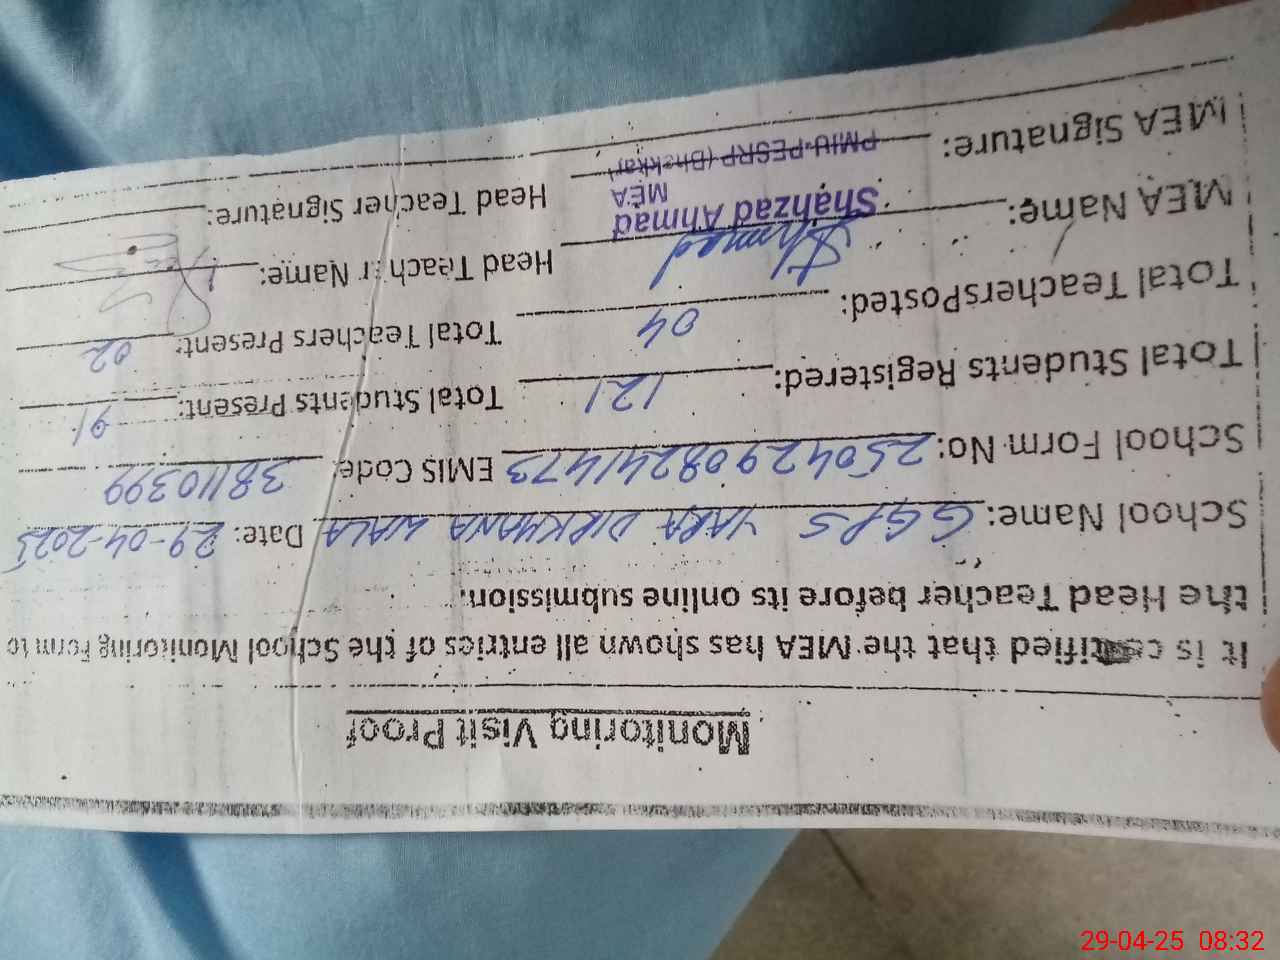 Monitoring Visit Proof
It is certified that the MEA has shown all entries of the School Monitoring Form to
the Head Teacher before its online submission.
School Name: GGPS YARA DIRKHANA WALA Date: 29-04-2025
School Form No: 25042908241473 EMIS Code: 38110399
Total Students Registered: 121 Total Students Present: 91
Total TeachersPosted: 04 Total Teachers Present: 02
MEA Name: Ahmad Head Teacher Name:
Shahzad Ahmad
MEA
MEA Signature: PMIU-PESRP (Bhakkar) Head Teacher Signature:
29-04-25 08:32